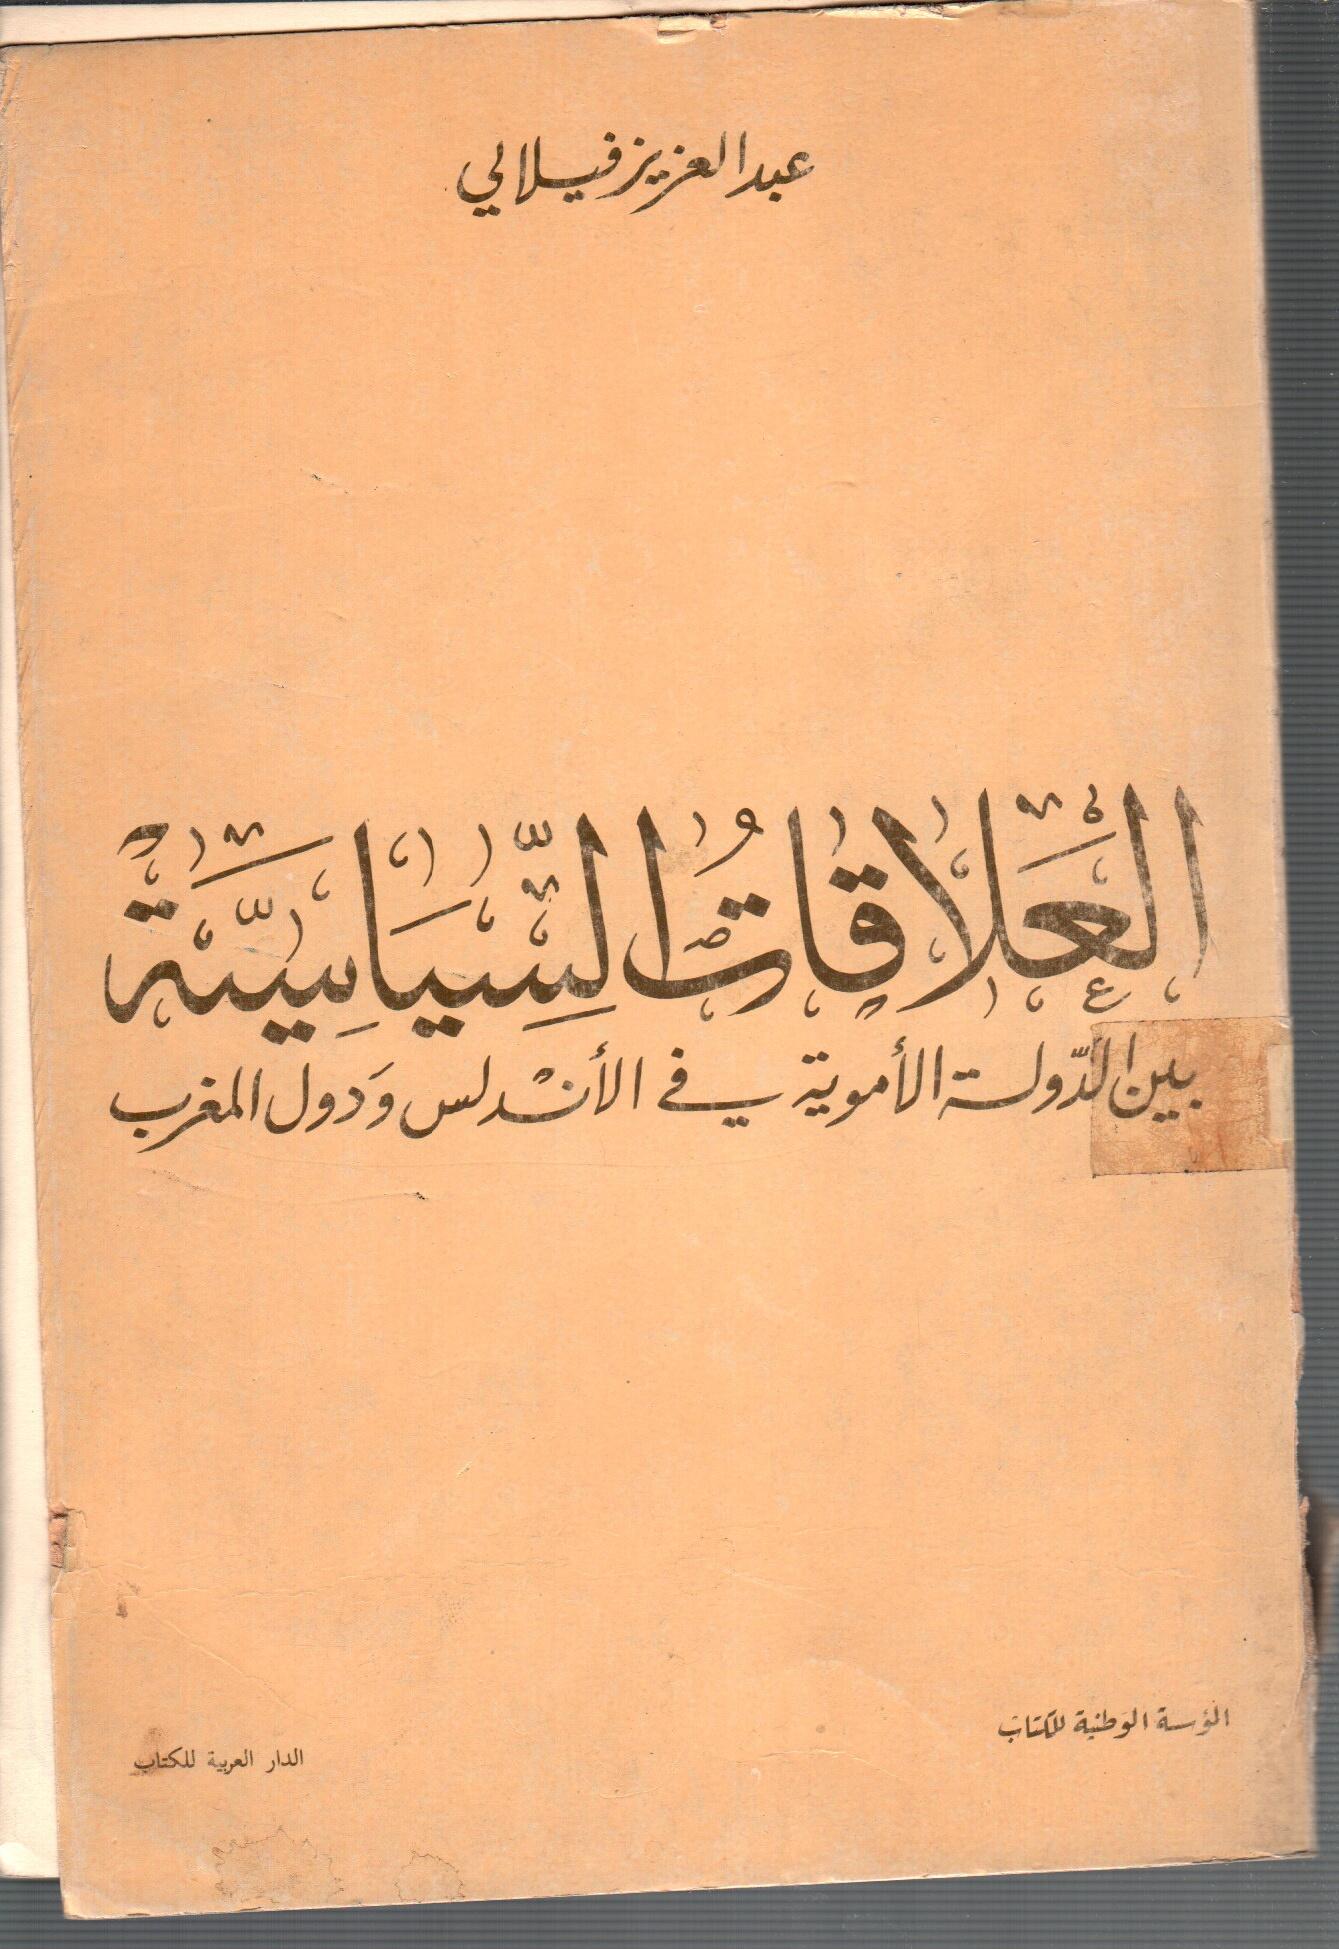 عبد العزيز فيلالي
العَلاقاتُ السِّيَاسِيَّة
بين الدّولة الأموية في الأندلس وَدول المغرب
المؤسسة الوطنية للكتاب
الدار العربية للكتاب